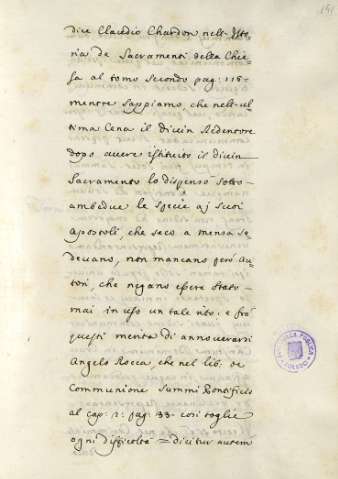 151
dice Claudio Chardon nell' Isto
ria de Sacramenti della Chie
sa al tomo secondo pag: 115-
mentre sappiamo, che nell' ul
tima Cena il divin Redentore
dopo avere istituito il divin
Sacramento lo dispensò sotto
ambedue le specie aj suoi
Apostoli, che seco a mensa se
devano, non mancano però Au
tori, che negano essere stato
mai in uso un tale rito: e frà
questi merita di annoverarsi
Angelo Rocca, che nel lib. de
Communione Summi Pontificis
al cap: 2: pag: 33- così toglie
ogni difficoltà = dicitur autem